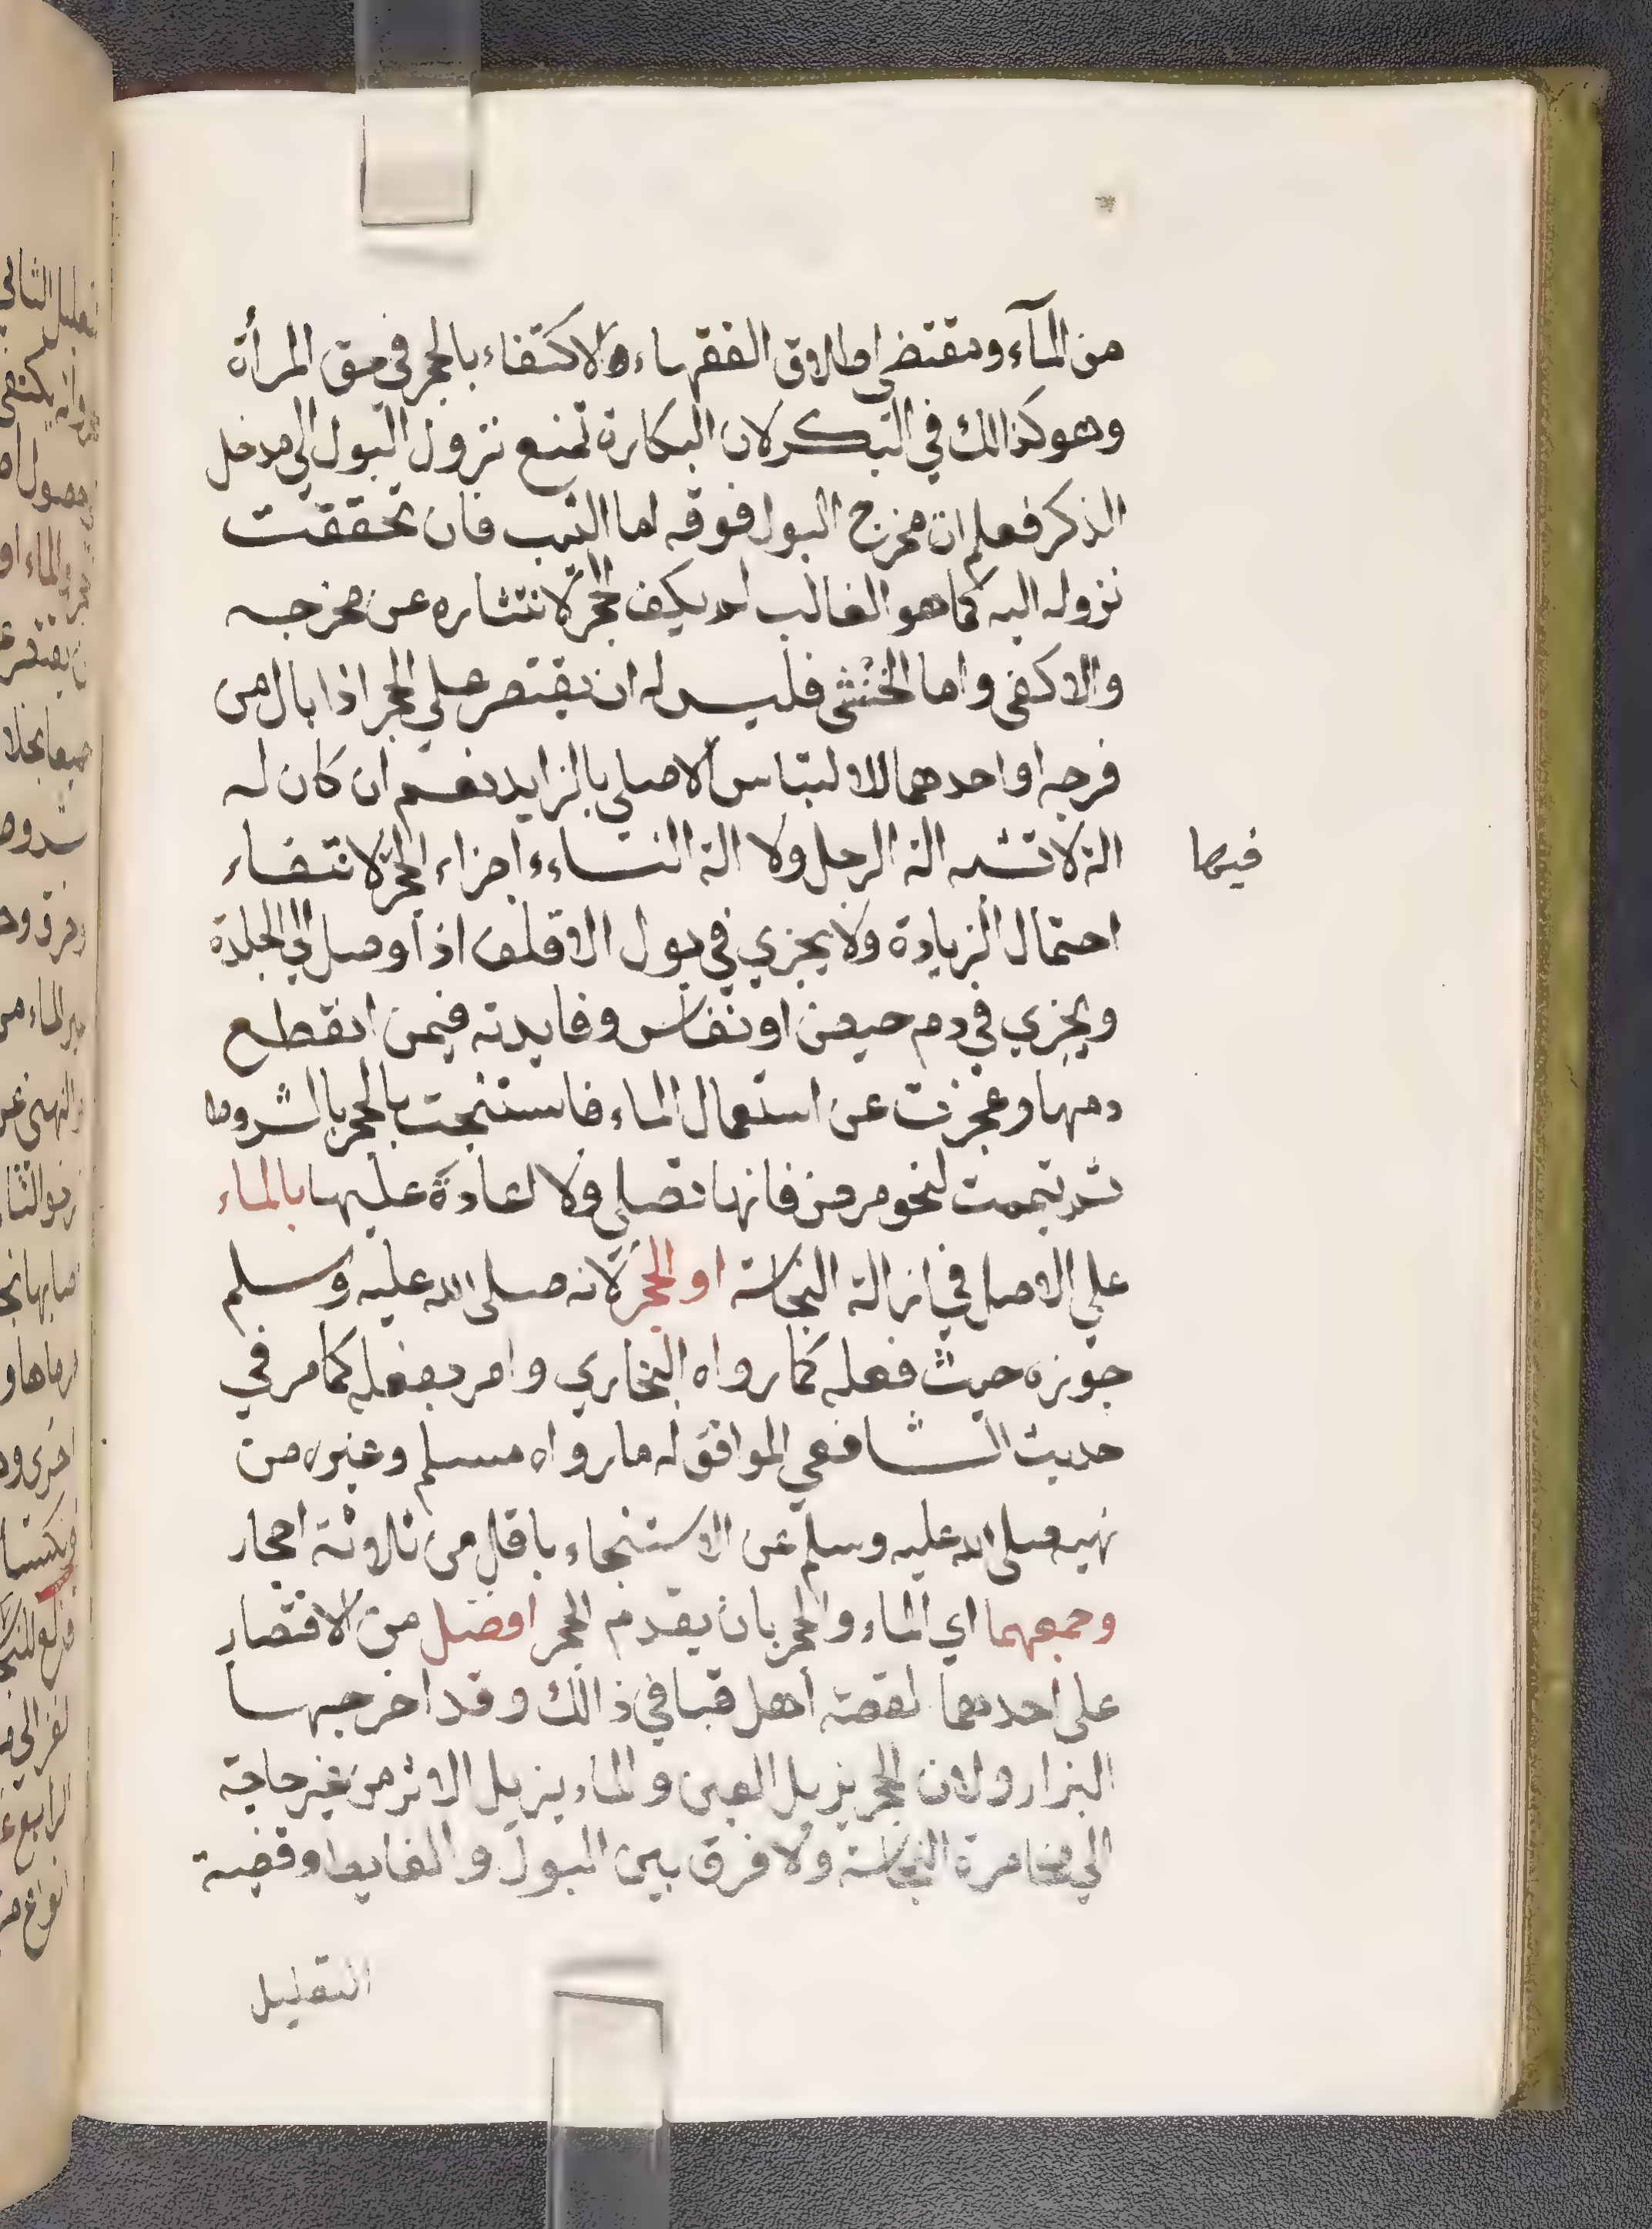 من المآء ومقتضي اطلاق الفقهاء والاكتفاء بالحجر في حق المرأة
وهو كذالك في البكر لان البكارة تمنع نزول البول الي مدخل
الذكر فعلم ان مخرج البول فوقه اما الثيب فان تحققت
نزوله اليه كما هو الغالب لم يكف الحجر لانتشاره عن مخرجه
والا كفى واما الخنثى فليس له ان يقتصر علي الحجر اذا بال من
فرجه او احدهما لالتباس الاصلي بالزايد نعم ان كان له
الة لا تشبه الة الرجل ولا الة النساء اجزاء الحجر لانتفاء
فيها
احتمال الزيادة ولا يجزي في بول الاقلف اذا وصل الي الجلدة
ويجزي في دم حيض او نفاس وفايدته فيمن انقطع
دمها وعجزت عن استعمال الماء فاستنجت بالحجر بالشروط
ثم تيممت لنحو مرض فانها تصلي ولا اعادة عليها بالماء
علي الاصل في ازالة النجاسة او الحجر لانه صلى الله عليه وسلم
جوزه حيث فعله كما رواه البخاري وامر بفعله كما مر في
حديث الشافعي الموافق له ما رواه مسلم وغيره من
نهيه صلى الله عليه وسلم عن الاستنجاء باقل من ثلاثة احجار
وجمعهما اي الماء والحجر بان يقدم الحجر افضل من الاقتصار
على احدهما لقصة اهل قبا في ذالك وقد اخرجها
البزار ولان الحجر يزيل العين والماء يزيل الاثر من غير حاجة
الي مخامرة النجاسة ولا فرق بين البول والغايط وقضية
التعليل